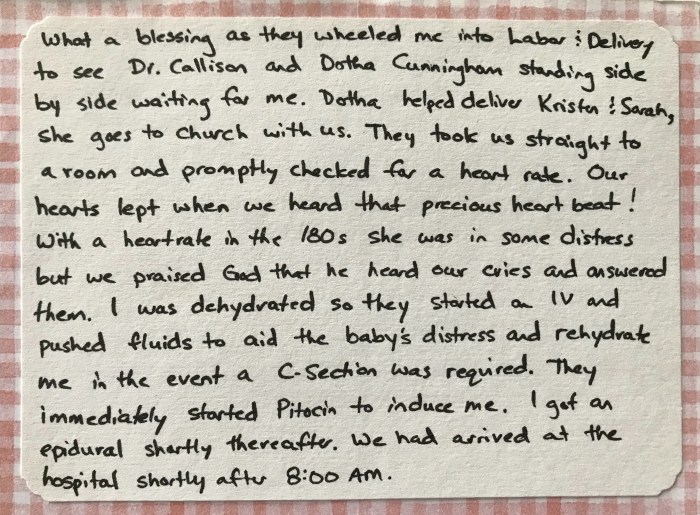 What a blessing as they wheeled me into Labor & Delivery
to see Dr. Callison and Dotha Cunningham standing side
by side waiting for me. Dotha helped deliver Kristen & Sarah,
she goes to church with us. They took us straight to
a room and promptly checked for a heart rate. Our
hearts lept when we heard that precious heart beat!
With a heartrate in the 180s she was in some distress
but we praised God that he heard our cries and answered
them. I was dehydrated so they started an IV and
pushed fluids to aid the baby's distress and rehydrate
me in the event a C-Section was required. They
immediately started Pitocin to induce me. I got an
epidural shortly thereafter. We had arrived at the
hospital shortly after 8:00 AM.